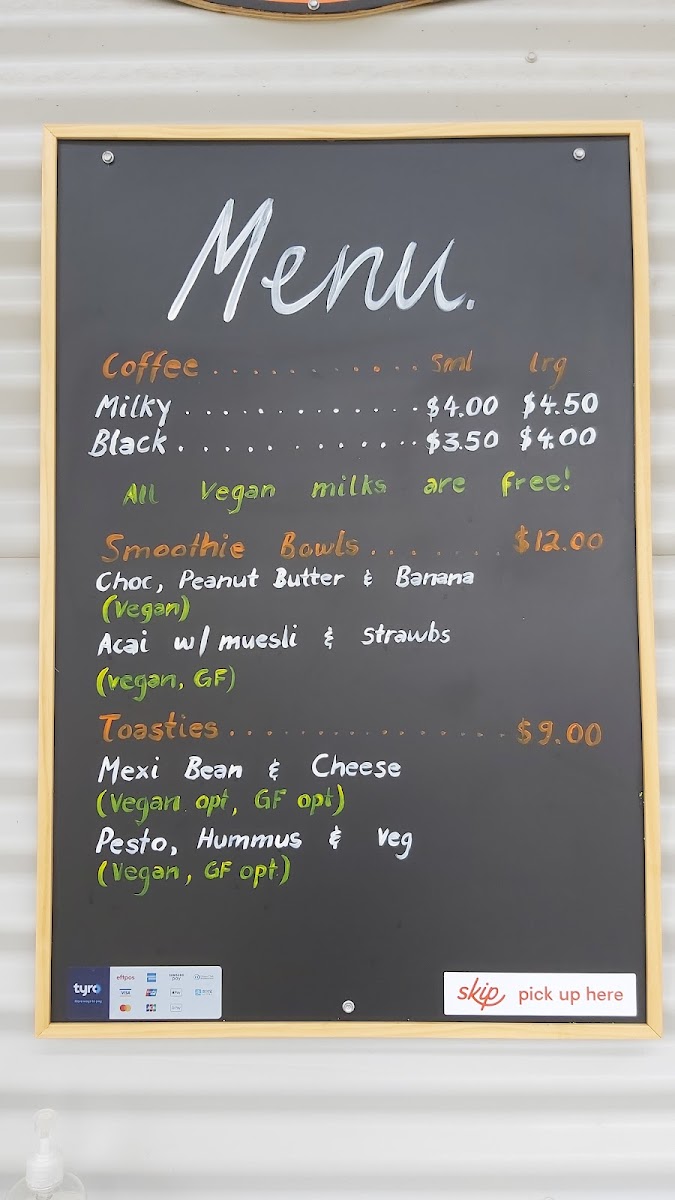 Menu.
Coffee . . . . . . . . . . . . Sml lrg
Milky . . . . . . . . . . . . . $4.00 $4.50
Black . . . . . . . . . . . . . $3.50 $4.00
All Vegan milks are free!
Smoothie Bowls . . . . . . . $12.00
Choc, Peanut Butter & Banana
(Vegan)
Acai w/ muesli & strawbs
(vegan, GF)
Toasties . . . . . . . . . . . . . . . $9.00
Mexi Bean & Cheese
(Vegan opt, GF opt)
Pesto, Hummus & Veg
(Vegan, GF opt)
tyro
eftpos
VISA
skip pick up here